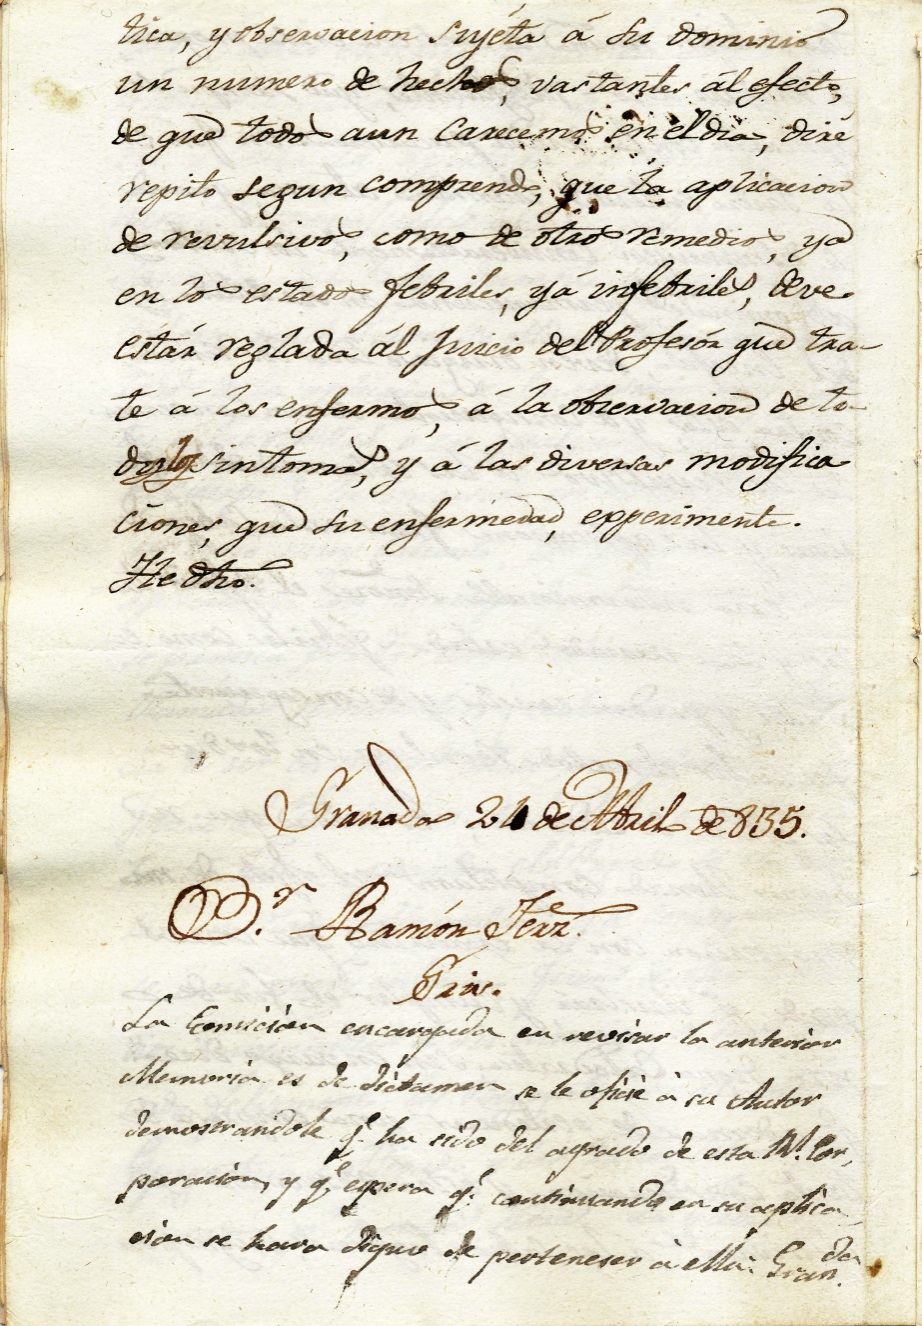 tica, y observacion sujéta á su dominio
un numero de hechos, vastantes ál efecto,
de que todos aun carecemos en el dia, diré
repito segun comprendo, que la aplicacion
de revulsivos, como de otros remedios, ya
en los estados febriles, yá infebriles, deve
estár reglada ál Juicio del Profesór que tra-
te á los enfermos, á la observacion de to-
dos los sintomas, y á las diversas modifica
ciones, que su enfermedad, epperimente.
He dho.
Granada 21 de Abril de 835.
D.r Ramón Ferz.
La Comicion encargada en revisar la anterior
Memoria es de dictamen se le oficie à su Autor
demostrandole q.e ha sido del agrado de esta Rl. Cor,
poracion, y q.e espera q.e continuando en su aplica
cion se hara digno de perteneser à ella. Gran.da